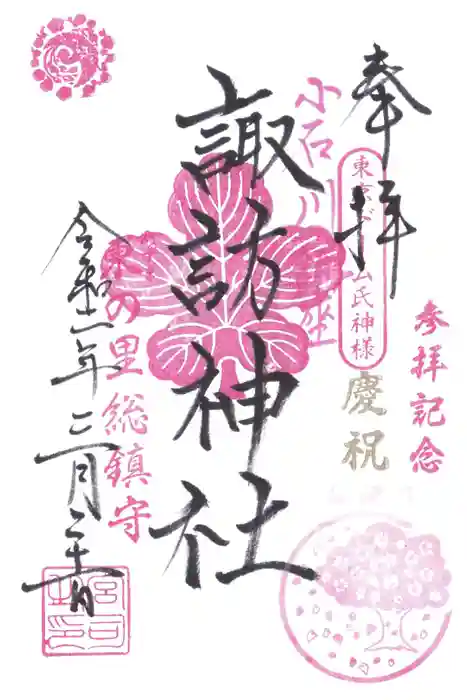 奉拝
東京ドーム氏神様
参拝記念
慶祝
小石川鎮坐
諏訪神社
の里総鎮守
令和二年三月二十
宮司之印